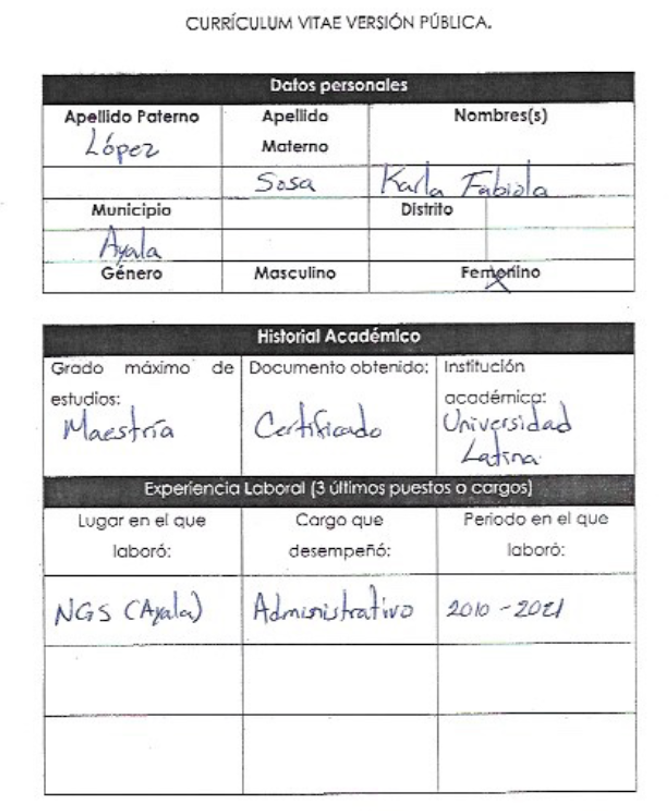 CURRÍCULUM VITAE VERSIÓN PÚBLICA.
Datos personales
Apellido Paterno Apellido Materno Nombres(s)
López
Sosa Karla Fabiola
Municipio Distrito
Ayala
Género Masculino Femenino
Historial Académico
Grado máximo de estudios: Documento obtenido: Institución académica:
Maestría Certificado Universidad Latina
Experiencia Laboral (3 últimos puestos o cargos)
Lugar en el que laboró: Cargo que desempeñó: Periodo en el que laboró:
NGS (Ayala) Administrativo 2010 - 2021